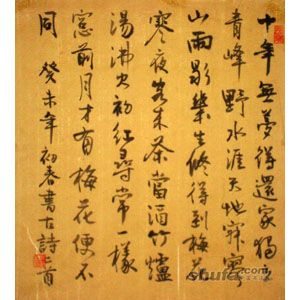 十年無夢得還家獨立
青峰野水涯天地寂寥
山雨歇幾生修得到梅花
寒夜客來茶當酒竹爐
湯沸火初紅尋常一樣
窗前月才有梅花便不
同 癸未年初春書古詩二首